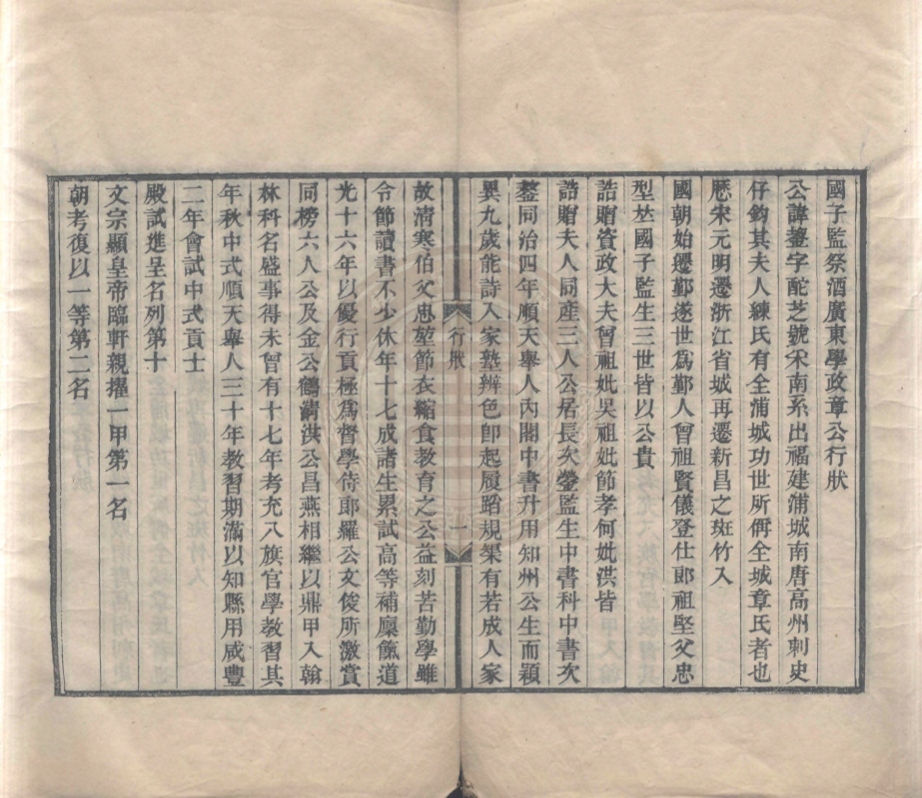 國子監祭酒廣東學政章公行狀
公諱鋆字酡芝號宋南系出福建浦城南唐高州刺史
仔鈞其夫人練氏有全浦城功世所偁全城章氏者也
歷宋元明遷浙江省城再遷新昌之斑竹入
國朝始遷鄞遂世爲鄞人曾祖賢儀登仕郎祖堅父忠
型竝國子監生三世皆以公貴
誥贈資政大夫曾祖妣吳祖妣節孝何妣洪皆
誥贈夫人同產三人公居長次鎣監生中書科中書次
鍪同治四年順天舉人內閣中書升用知州公生而穎
異九歲能詩入家塾辨色卽起履蹈規榘有若成人家
行狀
一
故淸寒伯父忠堃節衣縮食敎育之公益刻苦勤學雖
令節讀書不少休年十七成諸生累試高等補廩餼道
光十六年以優行貢極爲督學侍郞羅公文俊所激賞
同榜六人公及金公鶴淸洪公昌燕相繼以鼎甲入翰
林科名盛事得未曾有十七年考充八旗官學敎習其
年秋中式順天舉人三十年敎習期滿以知縣用咸豐
二年會試中式貢士
殿試進呈名列第十
文宗顯皇帝臨軒親擢一甲第一名
朝考復以一等第二名